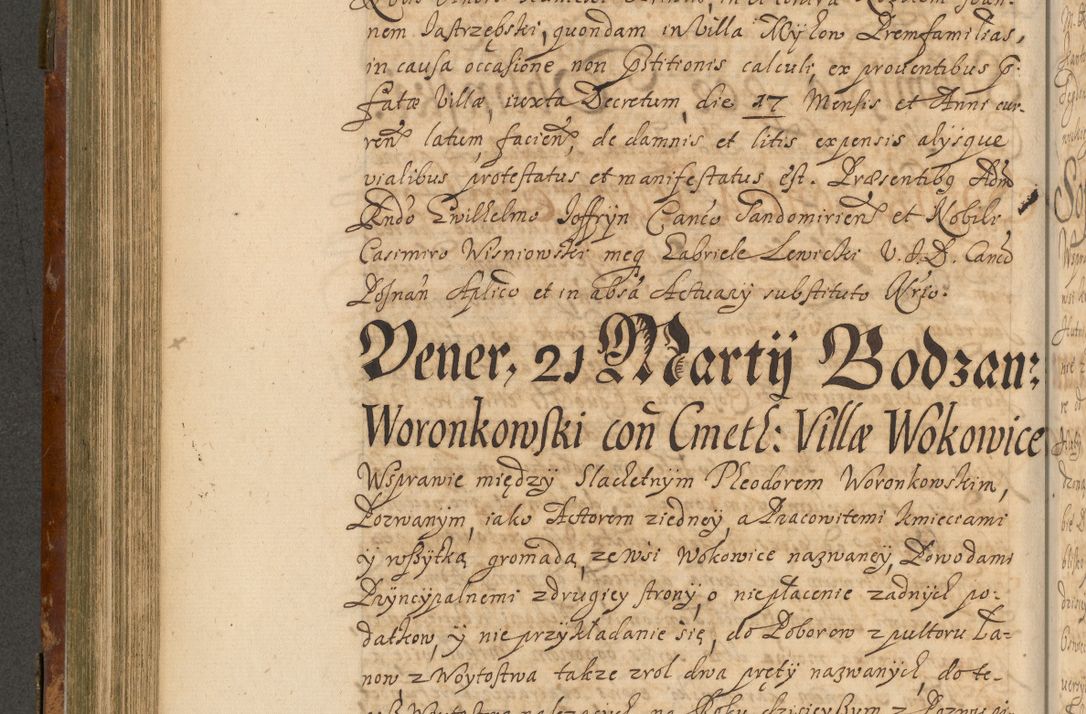 nem Jastrzębski, quondam in Villa Mykow Præmfamilias,
in causa occasione non Pstitionis calculi, ex prouentibus p.
fatæ Villæ, iuxta Decretum, die 17 Mensis et Anni cur-
ren latum, facien, de damnis et litis expensis alysque
vialibus protestatus et manifestatus est. Præsentibq Adm
Rndo Gwilhelmo Joffryn Canco Sandomirien et Nobili
Casimiro Wisniowski meq Gabriele Lewicki V. J. D. Canco
Posnan Aplico et in absa Actuary substituto Nrio.
Vener, 21 Martij Bodzan:
Woronkowski con Cmeth: Villæ Wokowice
Wsprawie między Slachetnym Theodorem Woronkowskim,
Pozwanym, iako Actorem ziedney, a Pracowitemi kmieciami
y wszytką gromadą, ze wsi Wokowice nazwaney, Powodami
Pryncypalnemi zdrugiey strony, o niepłacenie zadnych po-
datkow, y nie przykładanie się, do Poborow z pultoru Ła-
now, z Woytostwa takze zrol dwa pręty nazwanych, do te-